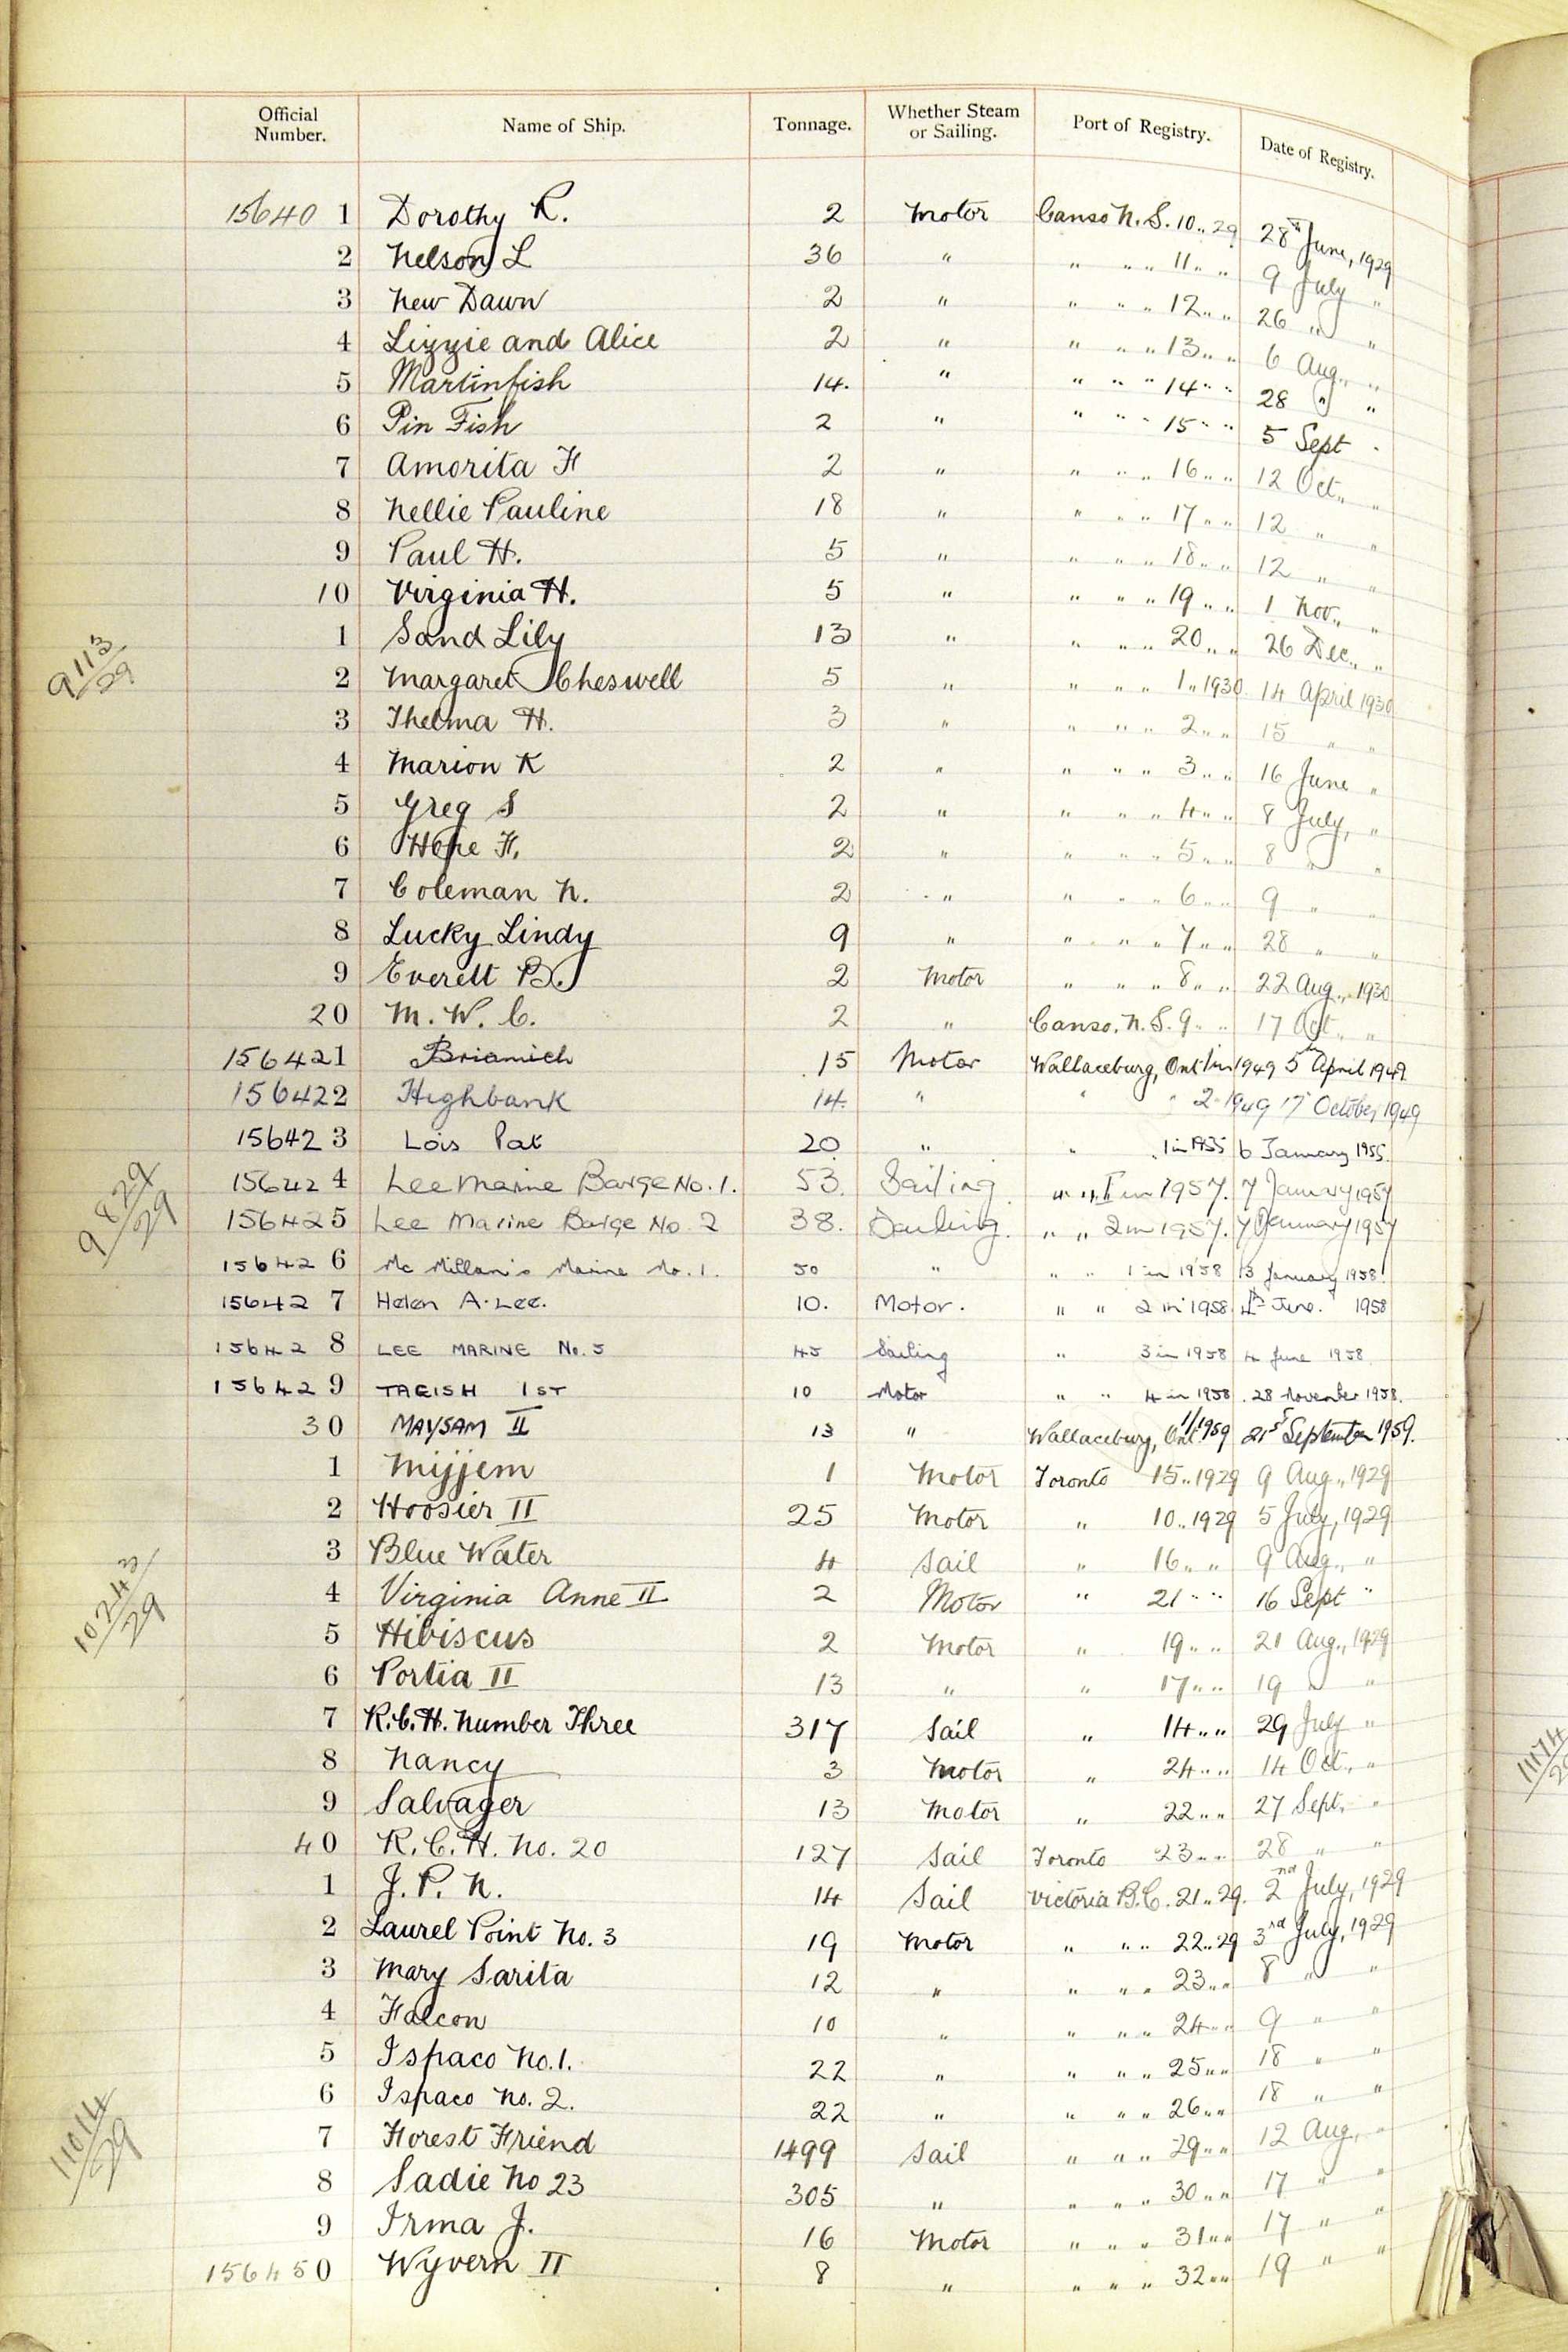 Official Number. Name of Ship. Tonnage. Whether Steam or Sailing. Port of Registry. Date of Registry.
156401 Dorothy R. 2 Motor Canso N.S. 10 „ 29 28th June, 1929
2 Nelson L 36 " " " " 11 " " 9 July "
3 New Dawn 2 " " " " 12 " " 26 " "
4 Lizzie and Alice 2 " " " " 13 " " 6 Aug., "
5 Martinfish 14. " " " " 14 " " 28 " "
6 Pin Fish 2 " " " " 15 " " 5 Sept "
7 Amorita F 2 " " " " 16 " " 12 Oct., "
8 Nellie Pauline 18 " " " " 17 " " 12 " "
9 Paul H. 5 " " " " 18 " " 12 " "
10 Virginia H. 5 " " " " 19 " " 1 Nov., "
1 Sand Lily 13 " " " " 20 " " 26 Dec., "
9113/29
2 Margaret Cheswell 5 " " " " 1 „ 1930 14 April 1930
3 Thelma H. 3 " " " " 2 " " 15 " "
4 Marion K 2 " " " " 3 " " 16 June "
5 Greg S 2 " " " " 4 " " 8 July, "
6 Hope F. 2 " " " " 5 " " 8 " "
7 Coleman N. 2 " " " " 6 " " 9 " "
8 Lucky Lindy 9 " " " " 7 " " 28 " "
9 Everett B. 2 Motor " " " 8 " " 22 Aug., 1930
20 M. W. C. 2 " Canso, N.S. 9 " " 17 Oct., "
156421 Briamich 15 Motor Wallaceburg, Ont 1 in 1949 5th April 1949
156422 Highbank 14. " " " 2 " 1949 17 October, 1949
156423 Lois Pat 20 " " " 1 in 1955 6 January 1955.
156424 Lee Marine Barge No. 1. 53. Sailing. " " 1 in 1957. 7 January 1957
9829/29
156425 Lee Marine Barge No. 2 38. Sailing. " " 2 in 1957. 7 January 1957
156426 Mc Millan's Marine No. 1. 50 " " " 1 in 1958 13 January 1958.
156427 Helen A. Lee. 10. Motor. " " 2 in 1958 4th June. 1958
156428 LEE MARINE No. 5 45 Sailing " 3 in 1958 4 June 1958
156429 TAGISH 1ST 10 Motor " " 4 in 1958. 28 November 1958.
30 MAYSAM II 13 " Wallaceburg, Ont. 1/1959 21st September 1959.
1 Mijjem 1 Motor Toronto 15 „ 1929 9 Aug., 1929
2 Hoosier II 25 Motor " 10 „ 1929 5 July, 1929
3 Blue Water 4 Sail " 16 " " 9 Aug., "
4 Virginia Anne II 2 Motor " 21 " " 16 Sept "
10243/29
5 Hibiscus 2 Motor " 19 " " 21 Aug., 1929
6 Portia II 13 " " 17 " " 19 " "
7 R.C.H. Number Three 317 Sail " 14 " " 29 July "
8 Nancy 3 Motor " 24 " " 14 Oct., "
9 Salvager 13 Motor " 22 " " 27 Sept. "
40 R.C.H. No. 20 127 Sail Toronto 23 " " 28 " "
1 J. P. N. 14 Sail Victoria B.C. 21 „ 29. 2nd July, 1929
2 Laurel Point No. 3 19 Motor " " " 22 „ 29 3rd July, 1929
3 Mary Sarita 12 " " " " 23 " " 8 " "
4 Falcon 10 " " " " 24 " " 9 " "
5 Ispaco No. 1. 22 " " " " 25 " " 18 " "
6 Ispaco No. 2. 22 " " " " 26 " " 18 " "
11014/29
7 Forest Friend 1499 Sail " " " 29 " " 12 Aug., "
8 Sadie No 23 305 " " " " 30 " " 17 " "
9 Irma J. 16 Motor " " " 31 " " 17 " "
156450 Wyvern II 8 " " " " 32 " " 19 " "